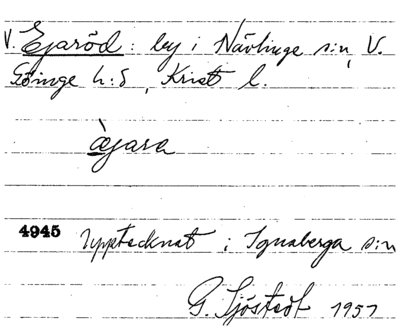 V. Ejaröd: by i Nävlinge s:n, V.
Göinge h:d, Krist l.
æ̀jara
4945 Upptecknat i Ignaberga s:n
G. Sjöstedt 1951